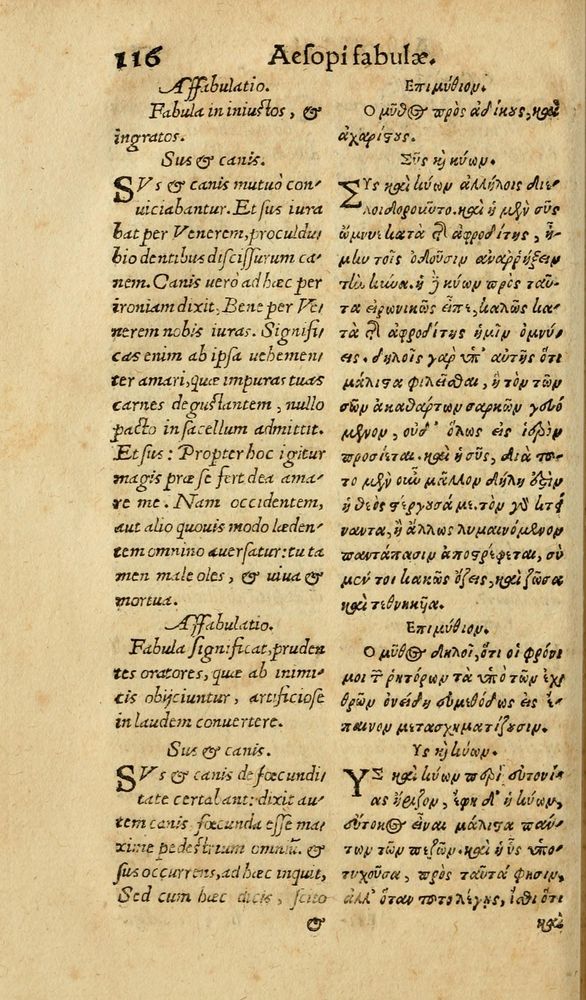 116 Aesopi fabulæ.
Affabulatio.
Fabula in iniustos, &
ingratos.
Sus & canis.
SVs & canis mutuò con-
uiciabantur. Et sus iura
bat per Venerem, proculdu
bio dentibus discissurum ca-
nem. Canis uerò ad hæc per
ironiam dixit, Bene per Ve-
nerem nobis iuras. Signifi-
cas enim ab ipsa uehemen-
ter amari, quæ impuras tuas
carnes degustantem, nullo
pacto in sacellum admittit.
Et sus: Propter hoc igitur
magis præ se fert dea ama-
re me. Nam occidentem,
aut alio quouis modo læden-
tem omnino auersatur: tu ta
men male oles, & uiua &
mortua.
Affabulatio.
Fabula significat, pruden
tes oratores, quæ ab inimi-
cis obijciuntur, artificiose
in laudem conuertere.
Sus & canis.
SVs & canis de fœcundi-
tate certabant: dixit au-
tem canis fœcunda esse ma-
xime pedestrium omniũ. &
sus occurrens, ad hæc inquit,
Sed cum hæc dicis, scito
&
Επιμύθιον.
Ο μῦθος πρὸς ἀδίκους, καὶ
ἀχαρίστους.
Σῦς καὶ κύων.
ΣΥς καὶ κύων ἀλλήλοις διε-
λοιδοροῦντο. καὶ ἡ μὲν σῦς
ὤμνυε κατὰ τῆς ἀφροδίτης, ἦ-
μὴν τοῖς ὀδοῦσιν ἀναρρήξειν
τὴν κύνα. ἡ δὲ κύων πρὸς ταῦ-
τα εἰρωνικῶς εἶπε, καλῶς κα-
τὰ τῆς ἀφροδίτης ἡμῖν ὀμνύ-
εις. δηλοῖς γὰρ ὑπ' αὐτῆς ὅτι
μάλιστα φιλεῖσθαι, ἣ τὸν τῶν
σῶν ἀκαθάρτων σαρκῶν γευό
μενον, οὐδ' ὅλως εἰς ἱερὸν
προσίεται. καὶ ἡ σῦς, διὰ τοῦ-
το μὲν οὖν μᾶλλον δήλη ἐστὶν
ἡ θεὸς στέργουσά με. τὸν γὰρ κτεί
ναντα, ἢ ἄλλως λυμαινόμενον
παντάπασιν ἀποστρέφεται, σὺ
μέν τοι κακῶς ὄζεις, καὶ ζῶσα
καὶ τεθνηκῦα.
Επιμύθιον.
Ο μῦθος δηλοῖ, ὅτι οἱ φρόνι
μοι τῶν ῥητόρων τὰ ὑπὸ τῶν ἐχ-
θρῶν ὀνείδη εὐμεθόδως εἰς ἔ-
παινον μετασχηματίζουσιν.
Υς καὶ κύων.
ΥΣ καὶ κύων περὶ εὐτοκί-
ας ἤριζον, ἔφη δ' ἡ κύων,
εὔτοκος εἶναι μάλιστα πάν-
των τῶν πεζῶν. καὶ ἡ ὗς ὑπο-
τυχοῦσα, πρὸς ταῦτά φησιν,
ἀλλ' ὅταν τοῦτο λέγῃς, ἴσθι ὅτι
καὶ